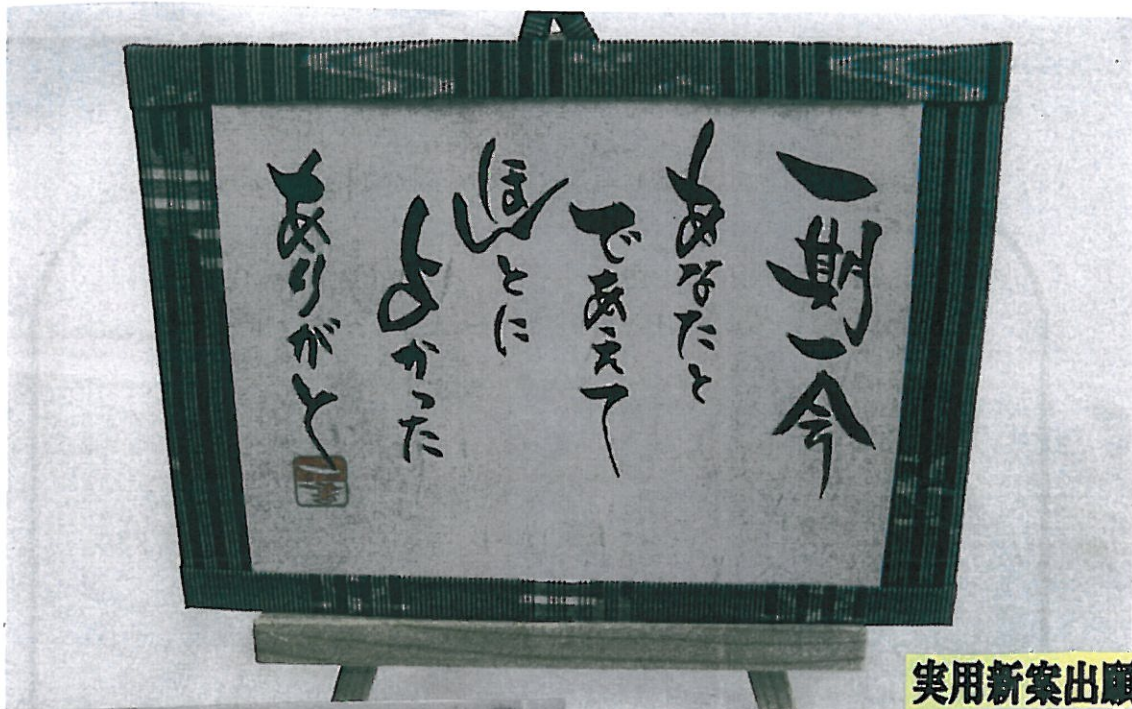 一期一会
あなたと
であえて
ほんとに
よかった
ありがと
実用新案出願